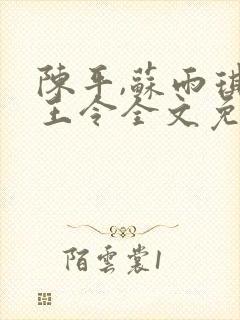 陳平,蘇雨琪
王令全文免
陌雲裳1